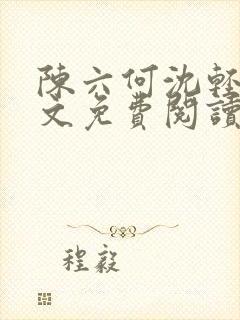 陳六何沈輕
文免費閱讀
程毅